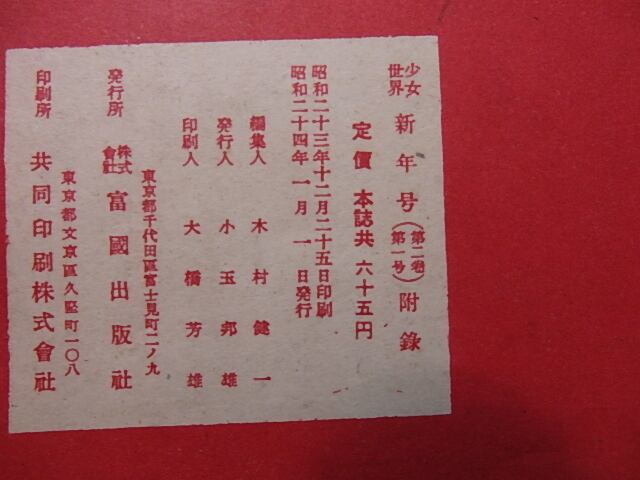 少女世界 新年号（第二巻第一号）附録
定價 本誌共 六十五円
昭和二十三年十二月二十五日印刷
昭和二十四年一月一日発行
編集人 木村健一
発行人 小玉邦雄
印刷人 大橋芳雄
東京都千代田區富士見町二ノ九
発行所 株式會社 富國出版社
東京都文京區久堅町一〇八
印刷所 共同印刷株式會社